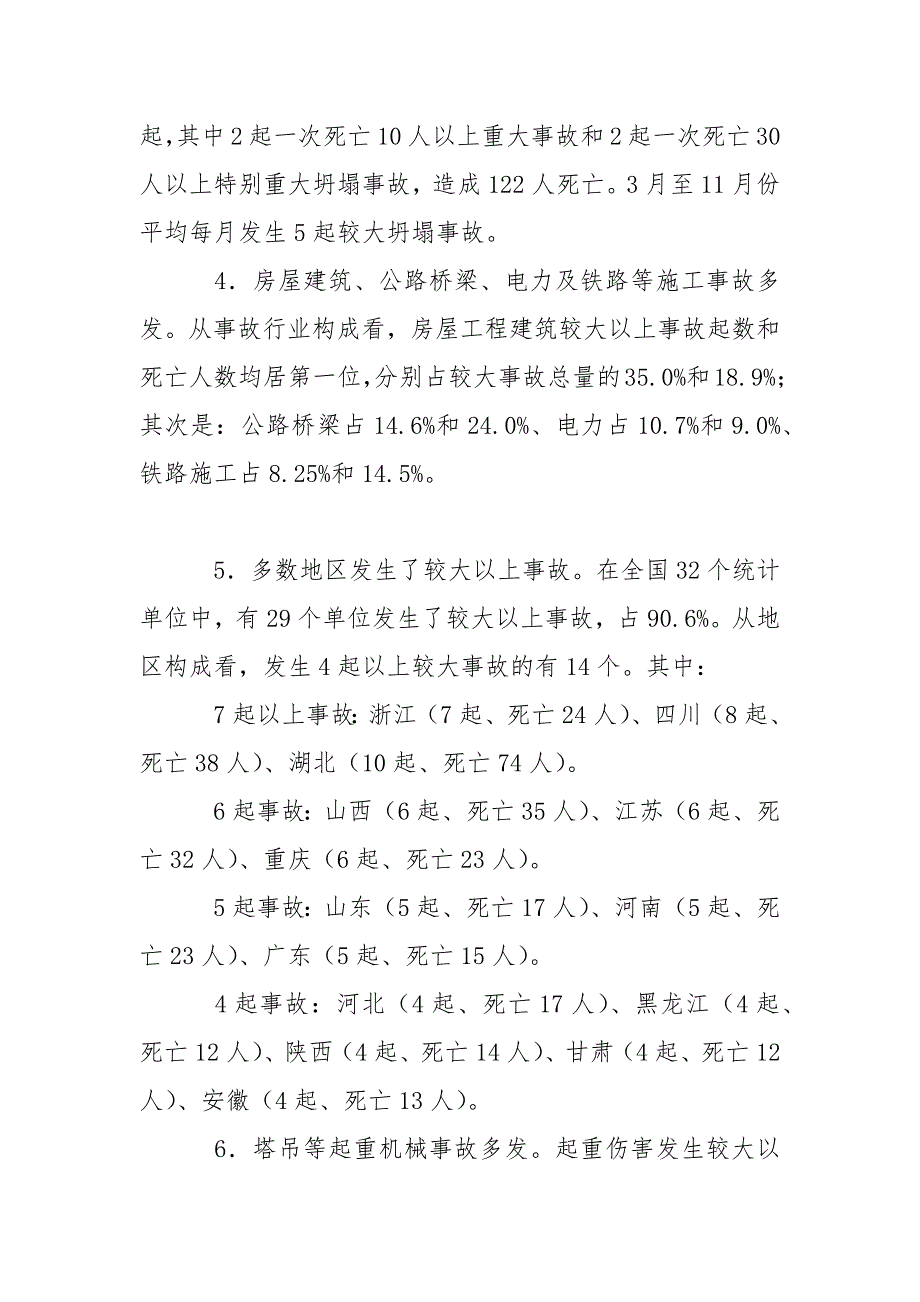 起,其中2起一次死亡10人以上重大事故和2起一次死亡30
人以上特别重大坍塌事故，造成122人死亡。3月至11月份
平均每月发生5起较大坍塌事故。
4．房屋建筑、公路桥梁、电力及铁路等施工事故多
发。从事故行业构成看，房屋工程建筑较大以上事故起数和
死亡人数均居第一位,分别占较大事故总量的35.0%和18.9%；
其次是：公路桥梁占14.6%和24.0%、电力占10.7%和9.0%、
铁路施工占8.25%和14.5%。
5．多数地区发生了较大以上事故。在全国32个统计
单位中，有29个单位发生了较大以上事故，占90.6%。从地
区构成看，发生4起以上较大事故的有14个。其中：
7起以上事故：浙江（7起、死亡24人）、四川（8起、
死亡38人）、湖北（10起、死亡74人）。
6起事故：山西（6起、死亡35人）、江苏（6起、死
亡32人）、重庆（6起、死亡23人）。
5起事故：山东（5起、死亡17人）、河南（5起、死
亡23人）、广东（5起、死亡15人）。
4起事故：河北（4起、死亡17人）、黑龙江（4起、
死亡12人）、陕西（4起、死亡14人）、甘肃（4起、死亡12
人）、安徽（4起、死亡13人）。
6．塔吊等起重机械事故多发。起重伤害发生较大以